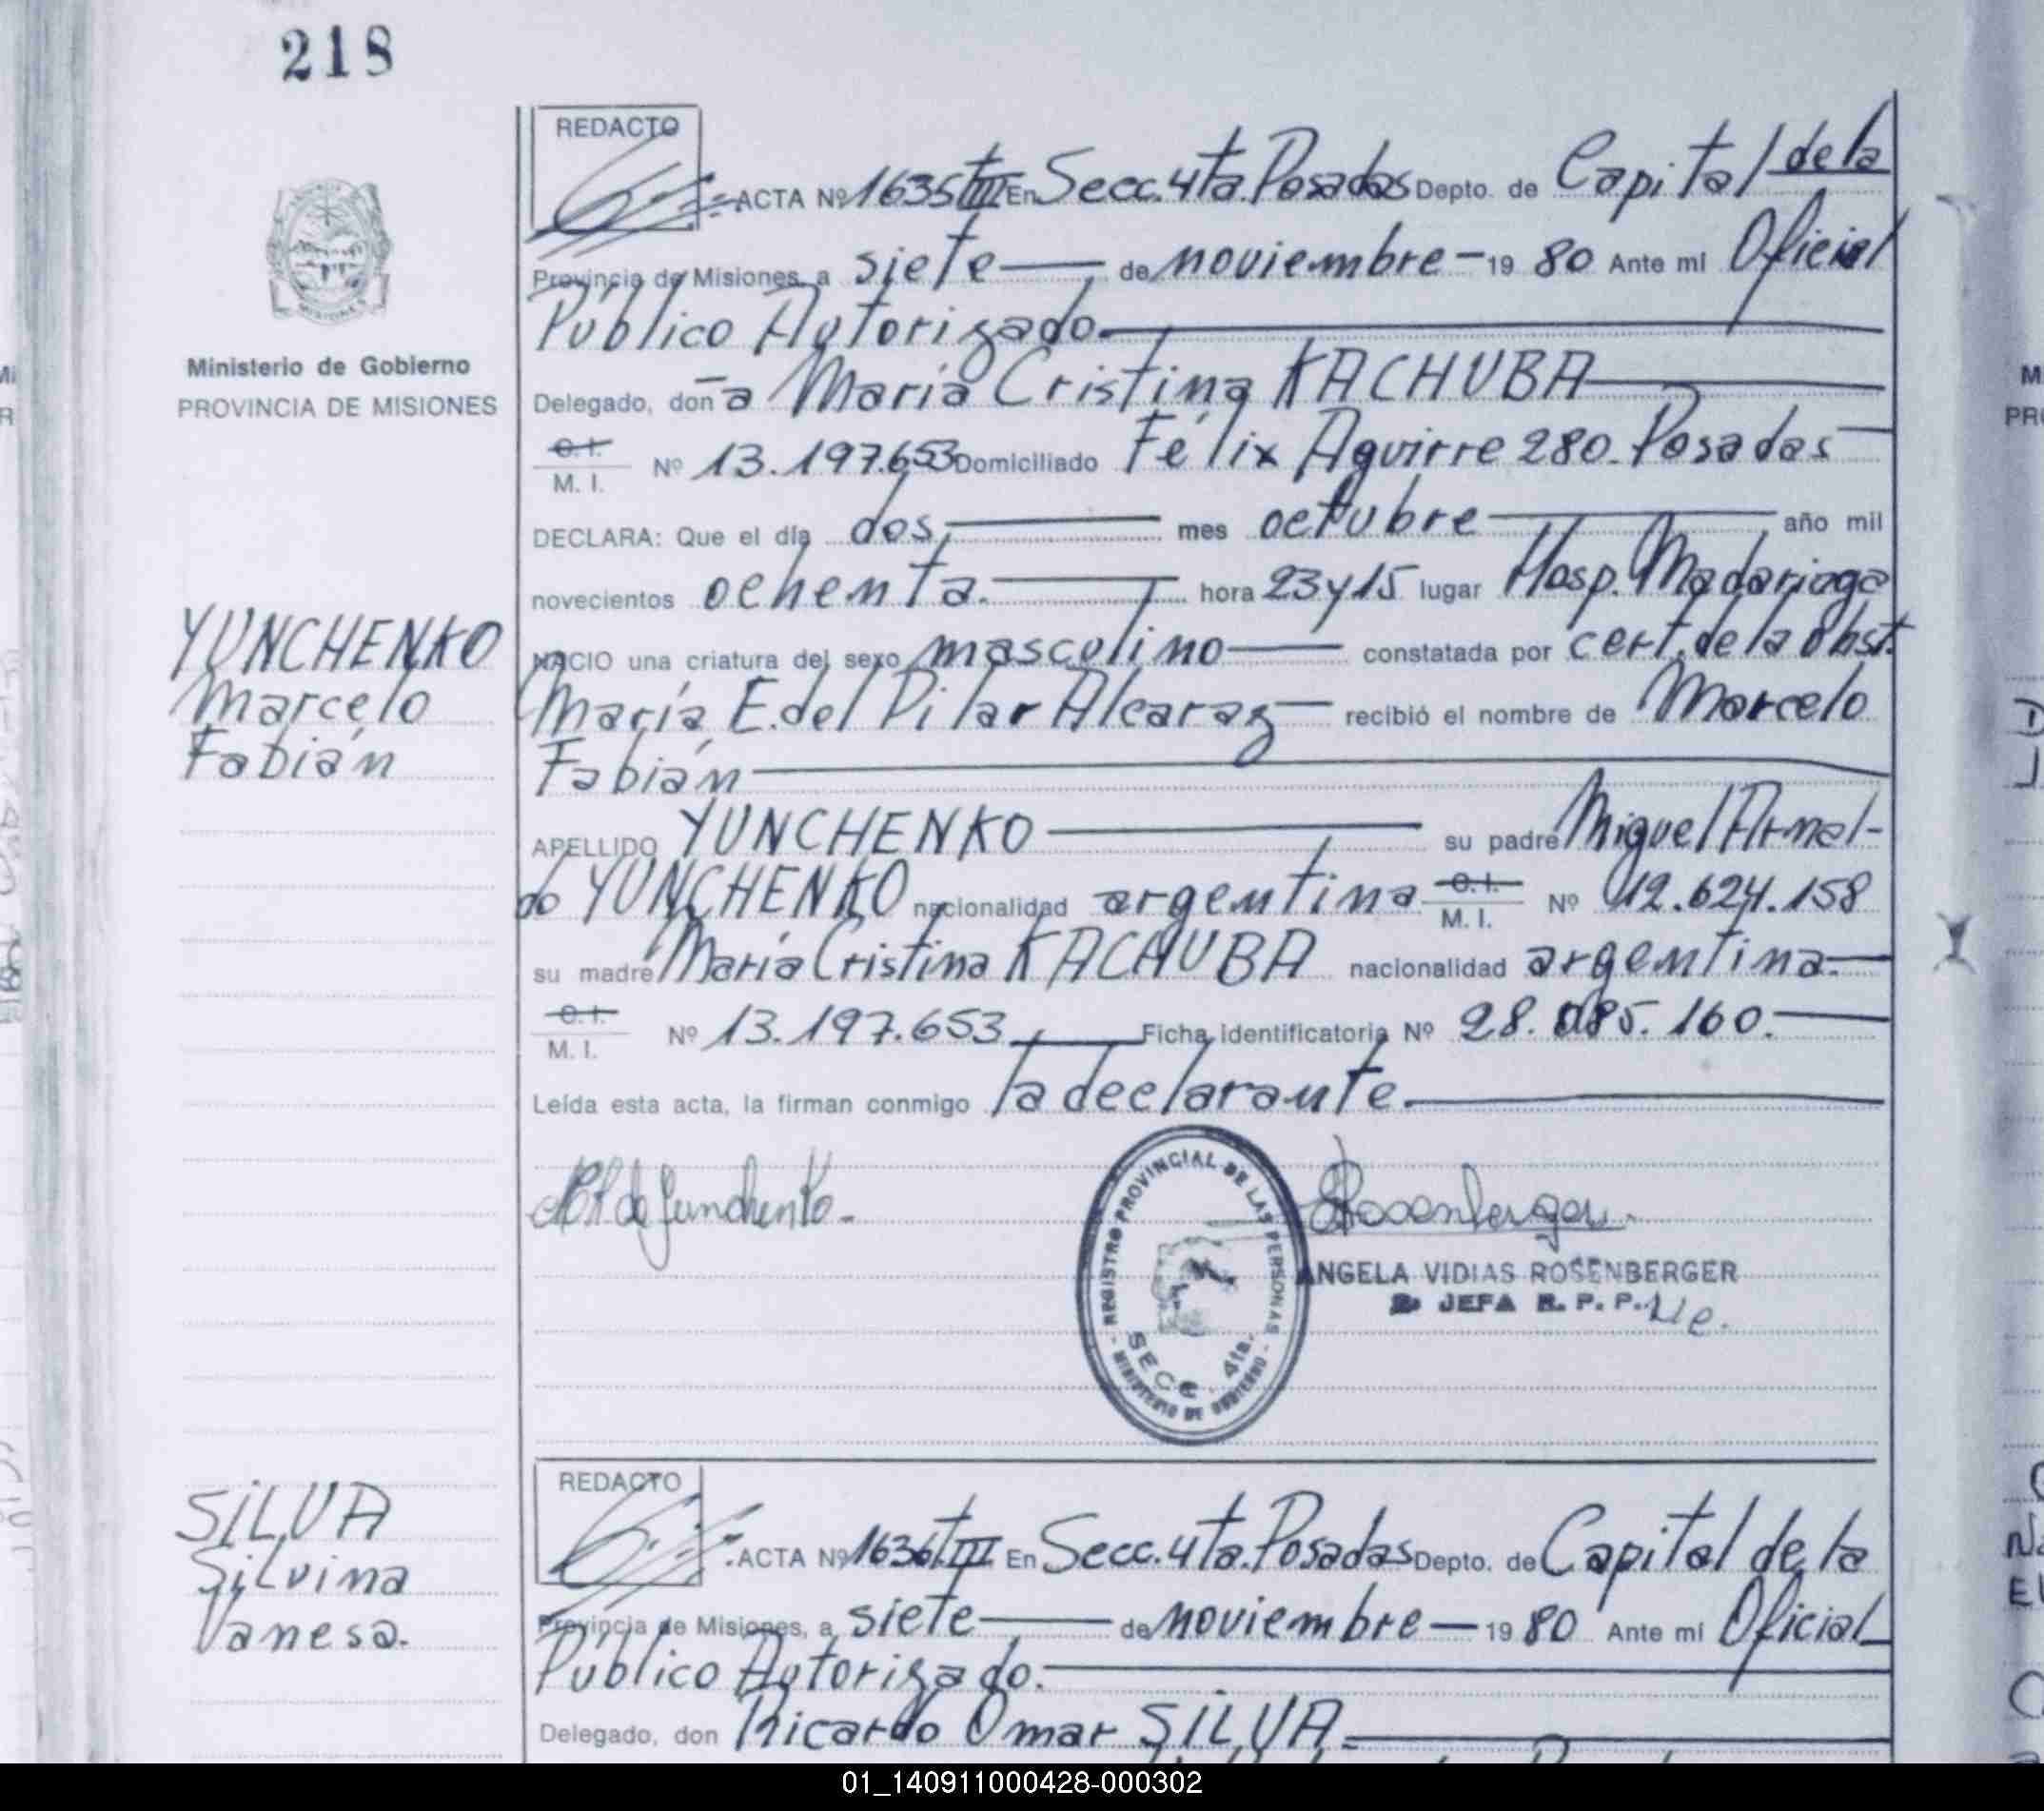 218
REDACTO
ACTA Nº 1635 t III En Secc. 4ta. Posadas Depto. de Capital de la
Provincia de Misiones, a siete — de noviembre — 19 80 Ante mí Oficial
Público Autorizado.
Ministerio de Gobierno
PROVINCIA DE MISIONES
Delegado, don a María Cristina KACHUBA
C. I.
M. I. Nº 13.197.653 Domiciliado Félix Aguirre 280. Posadas
DECLARA: Que el día dos, mes octubre año mil
novecientos ochenta. hora 23 y 15 lugar Hosp. Madariaga
NACIO una criatura del sexo masculino constatada por cert. de la Obst.
María E. del Pilar Alcaraz recibió el nombre de Marcelo
Fabián
YUNCHENKO
Marcelo
Fabián
APELLIDO YUNCHENKO su padre Miguel Arnal-
do YUNCHENKO nacionalidad argentina C. I.
M. I. Nº 12.624.158
su madre María Cristina KACHUBA nacionalidad argentina.
C. I.
M. I. Nº 13.197.653 Ficha identificatoria Nº 28.085.160.
Leída esta acta, la firman conmigo la declarante.
de Yunchenko.
Rosenberger
REGISTRO PROVINCIAL DE LAS PERSONAS
SECC. 4ta.
- MINISTERIO DE GOBIERNO -
ANGELA VIDIAS ROSENBERGER
JEFA R. P. P.
SILVA
Silvina
Vanesa.
REDACTO
ACTA Nº 1636 t III En Secc. 4ta. Posadas Depto. de Capital de la
Provincia de Misiones, a siete — de noviembre — 19 80 Ante mí Oficial
Público Autorizado.
Delegado, don Ricardo Omar SILVA
01_140911000428-000302